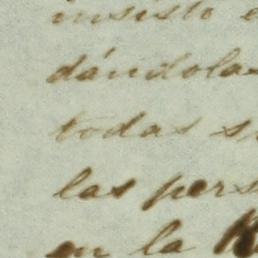 insisto
dándolas
todas
las pers
en la